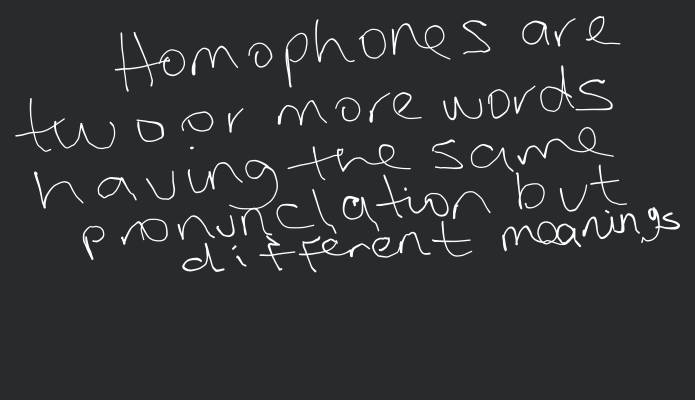 Homophones are
two or more words
having the same
pronunciation but
different meanings